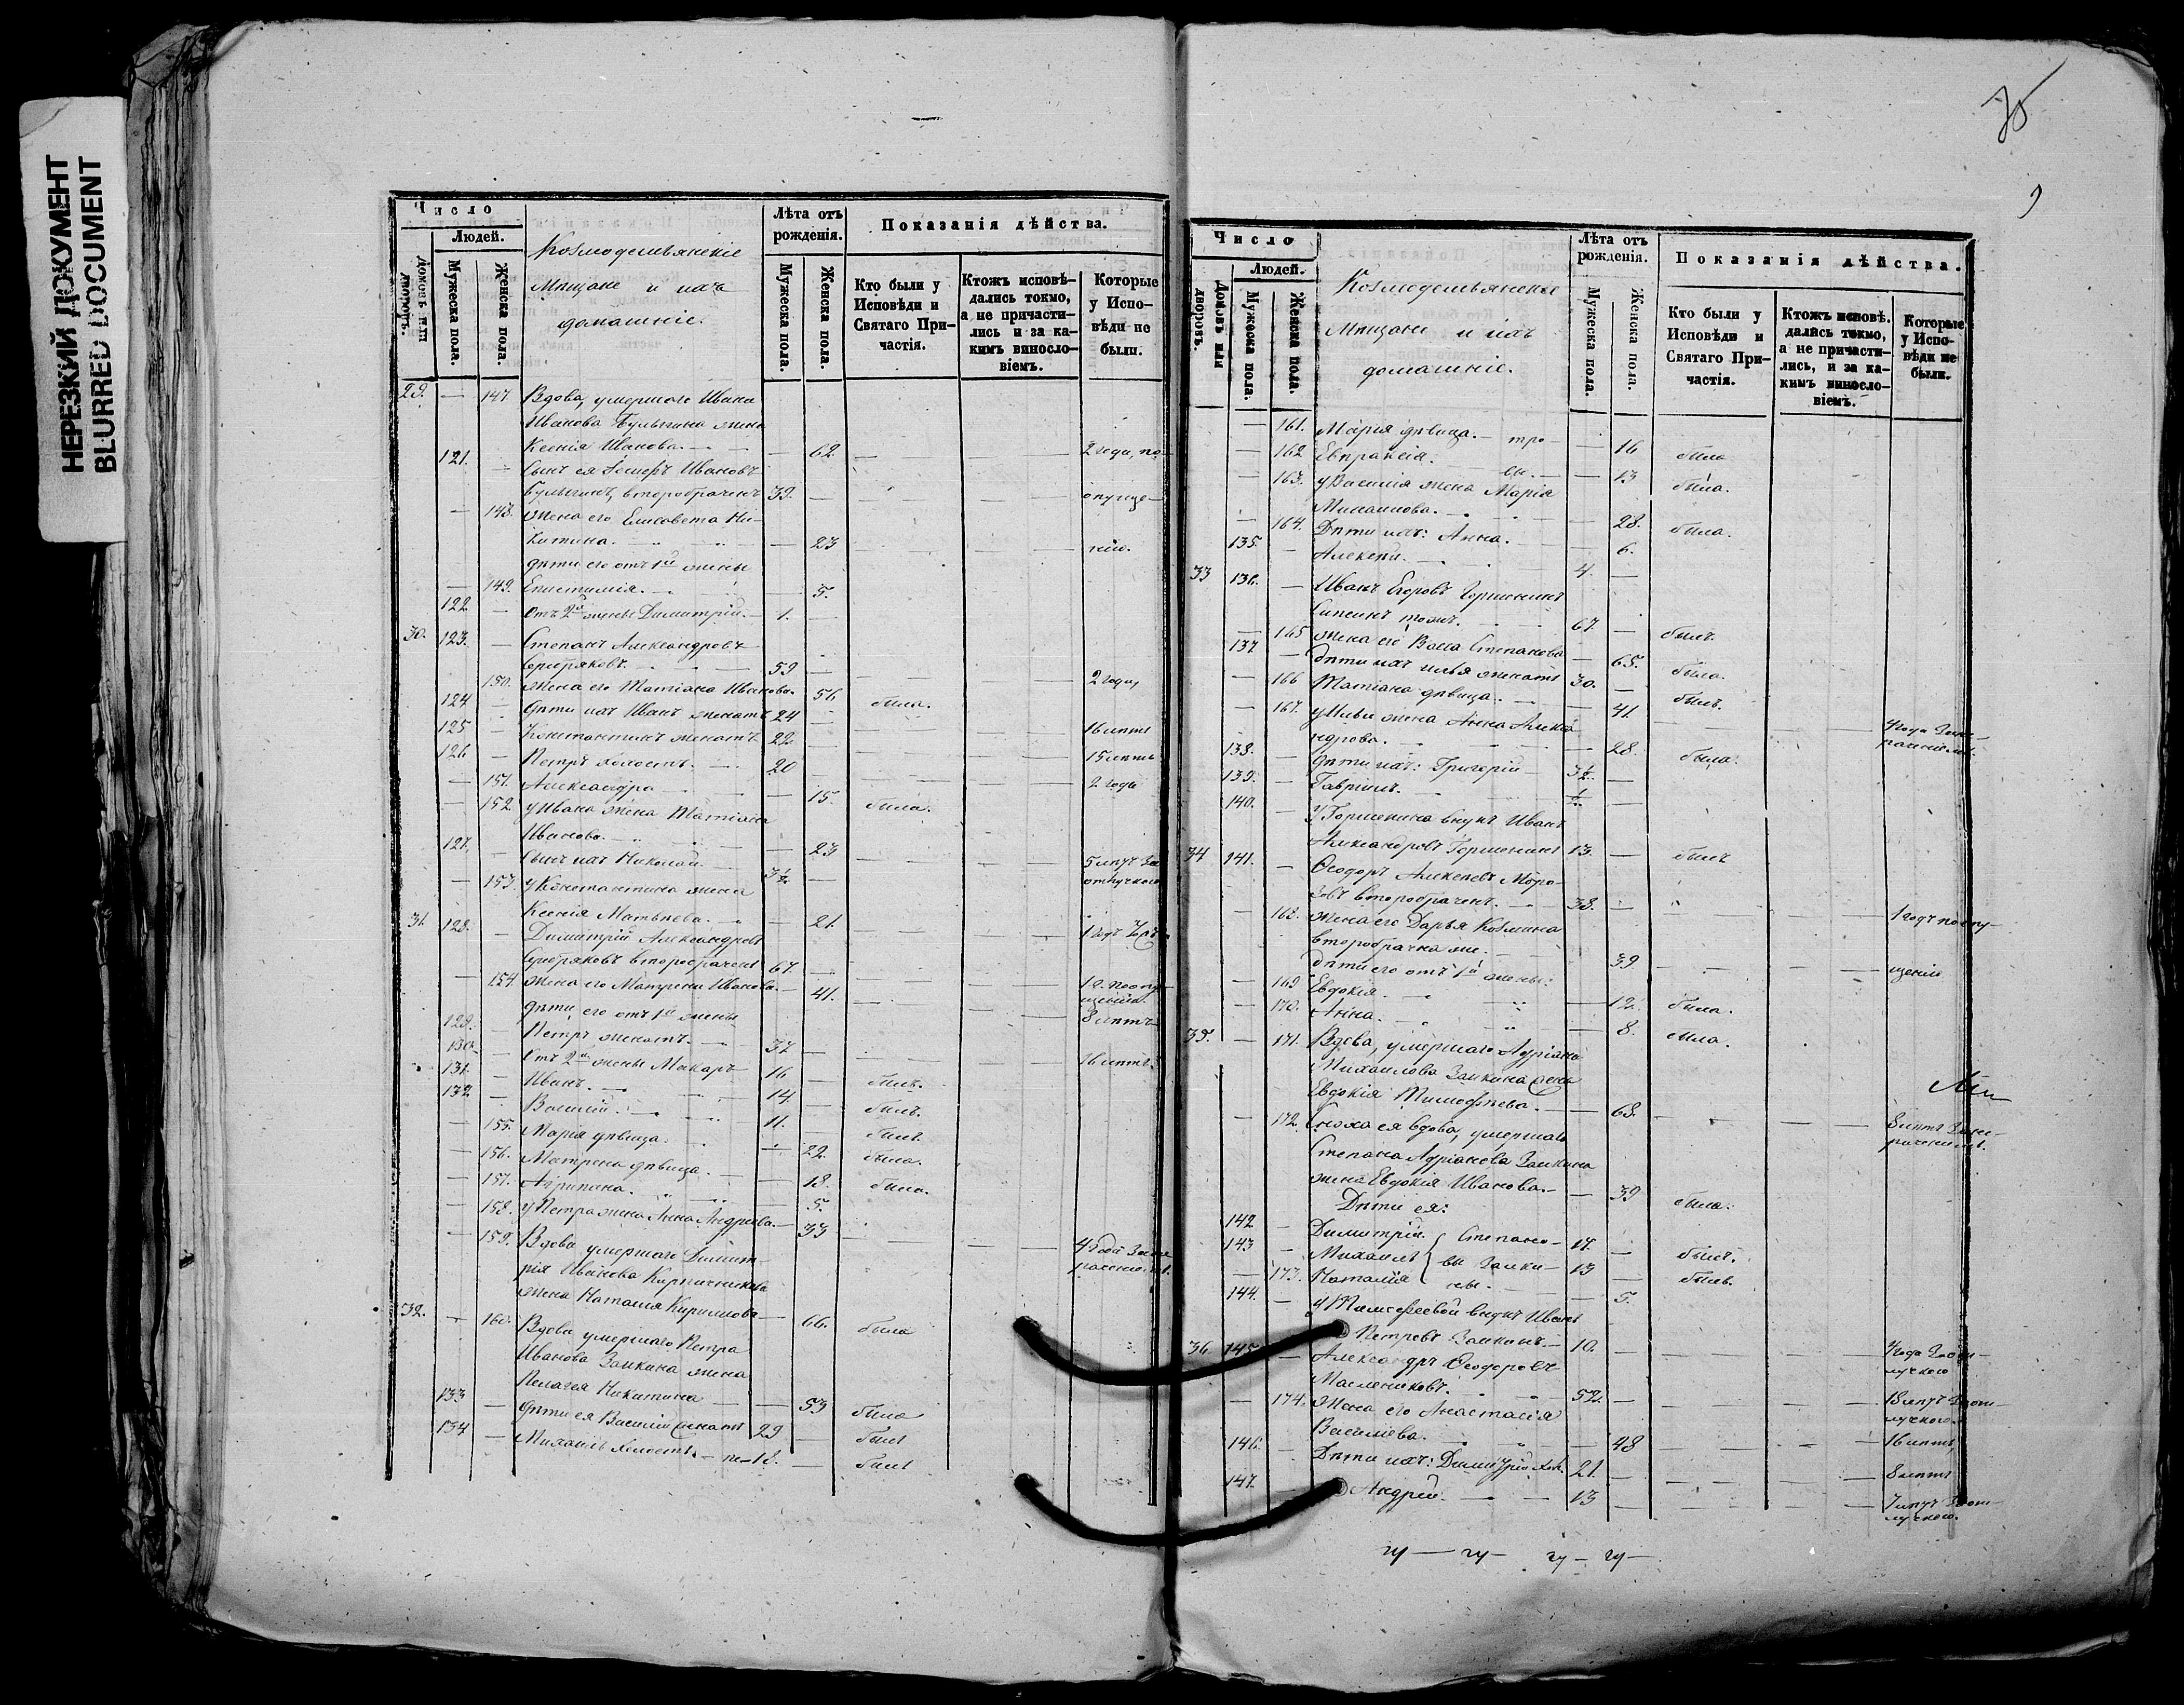 НЕРЕЗКИЙ ДОКУМЕНТ
BLURRED DOCUMENT
Число
Людей.
Домовъ или дворовъ.
Мужеска пола.
Женска пола.
Козмодемьянскіе
Мѣщане и ихъ
домашніе.
Лѣта отъ рожденія.
Мужеска пола.
Женска пола.
Показанія дѣйства.
Кто были у Исповѣди и Святаго Причастія.
Ктожъ исповѣдались токмо, а не причастились и за какимъ винословіемъ.
Которые у Исповѣди не были.
29. — 147 Вдова, умершаго Ивана
Иванова Булыгина жена
Ксенія Иванова. — 62. — 2 года, по
121. — Сынъ ея Іосифъ Ивановъ
Булыгинъ, второбраченъ 39. — опуще-
— 148. жена его Елисавета Ни-
китина. — 23 — нію.
дѣти его отъ 1й жены
— 149. Епистимія. — 5.
122 — Отъ 2й жены Димитрій. — 1. —
30. 123. — Степанъ Александровъ
Серебряковъ. — 59 — 2 года,
150. жена его Татіана Иванова. 56 была.
124 — Дѣти ихъ Иванъ женатъ 24 — 16 лѣтъ
125 — Константинъ женатъ 22 — 15 лѣтъ
126 — Петръ холостъ. 20 — 2 года
— 151. Александра — 15. была.
— 152. у Ивана жена Татіана
Иванова. — 23
127. — Сынъ ихъ Николай. 3½ — 5 лѣтъ за
отлучкою
— 153. у Константина жена
Ксенія Матвѣева. — 21. — 1 годъ
31. 128. — Димитрій Александровъ
Серебряковъ второбраченъ 67 — 1 г. по опу-
щенію.
— 154. жена его Матрена Иванова — 41. — 8 лѣтъ
дѣти его отъ 1й жены
129. — Петръ женатъ. — 37 — 16 лѣтъ.
130. — Отъ 2й жены Макаръ 16 — былъ.
131. — Иванъ. — 14. былъ.
132 — Василій. — 11. былъ.
— 155. Марія дѣвица. — 22. была.
— 156. Матрена дѣвица. — 18. была.
— 157. Агрипина. — 5.
— 158. у Петра жена Анна Андреева. — 33 — 4 года за не-
раченіемъ.
— 159. Вдова умершаго Димит-
рія Иванова Кирпичникова
жена Наталія Кирилова — 66. была
32. — 160. Вдова умершаго Петра
Иванова Заикина жена
Пелагея Никитина — 53 была
133 — дѣти ея Василій женатъ 29 — былъ
134 — Михаилъ холостъ. — пе-18. — былъ
75
9
Число
Людей.
Домовъ или дворовъ.
Мужеска пола.
Женска пола.
Козмодемьянскіе
Мѣщане и ихъ
домашніе.
Лѣта отъ рожденія.
Мужеска пола.
Женска пола.
Показанія дѣйства.
Кто были у Исповѣди и Святаго Причастія.
Ктожъ исповѣдались токмо, а не причастились, и за какимъ винословіемъ.
Которые у Исповѣди не были.
— 161. Марія дѣвица. — тро — 16 была
— 162 Евпраксія. — вы. — 13 была.
— 163. у Василія жена Марія
Михаилова. — 28. была.
— 164. Дѣти ихъ: Анна. — 6.
135. — Алексѣй. 4. —
33 136. — Иванъ Егоровъ Горшенинъ
67. — былъ.
— 165 жена его Васса Степанова — 65. была.
137. — дѣти ихъ Илья женатъ 30. — былъ.
— 166 Татіана дѣвица. — 41. — 4 года за не-
раченіемъ.
— 167. у Ильи жена Анна Алекса-
ндрова. — 28. была.
138. — дѣти ихъ: Григорій 3½. —
139. — Гавріилъ. ½. —
140. — у Горшенина внукъ Иванъ
Александровъ Горшенинъ 13. — былъ
34 141. — Ѳеодоръ Алексѣевъ Моро-
зовъ второбраченъ. — 38. — 1 годъ по опу-
— 168. жена его Дарья Козмина
второбрачна же. — 39 — щенію
дѣти его отъ 1й жены:
— 169 Евдокія. — 12. была.
— 170. Анна. — 8. была.
35. — 171. Вдова, умершаго Адріана
Михаилова Заикина жена
Евдокія Тимофѣева. — 68. — 8 лѣтъ за не-
раченіемъ.
— 172. Сноха ея вдова, умершаго
Степана Адріанова Заикина
жена Евдокія Иванова. — 39 была.
Дѣти ея:
142 — Димитрій Степано- 17. — былъ.
143 — Михаилъ вы Заики- 13 — былъ.
— 173. Наталія ны. — 5.
144. — у Тимофеевой внукъ Иванъ
Петровъ Заикинъ. — 10. — 4 года за от-
лучкою
36 145 — Александръ Ѳеодоровъ
Маслениковъ. 52. — 18 лѣтъ за от-
лучкою.
— 174. Жена его Анастасія
Васильева. — 48 — 16 лѣтъ,
146. — Дѣти ихъ: Димитрій хол. 21. — 8 лѣтъ
147. — Андрей. — 13 — 7 лѣтъ за от-
лучкою.